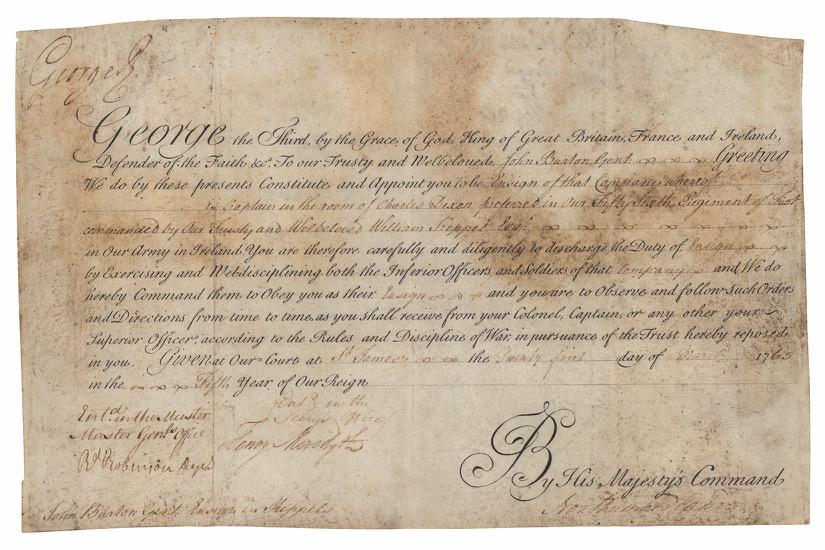 George R
George the Third, by the Grace, of God, King of Great Britain, France and Ireland,
Defender of the Faith &c. To our Trusty and Welbeloved John Burton Gent Greeting
We do by these presents Constitute and Appoint you to be Ensign of that Company whereof
is Captain in the room of Charles Dixon preferred in Our Fifty Sixth Regiment of Foot
commanded by Our Trusty and Welbeloved William Keppel Esqr
in Our Army in Ireland You are therefore carefully and diligently to discharge the Duty of Ensign
by Exercising and Weldisciplining both the Inferior Officers and Soldiers of that Company and We do
hereby Command them to Obey you as their Ensign and you are to Observe and follow Such Orders
and Directions from time to time, as you shall receive from your Colonel, Captain, or any other your
Superior Officer, according to the Rules, and Discipline of War, in pursuance of the Trust hereby reposed
in you. Given at Our Court at St James's the Twenty first day of March 1765
in the Fifth Year of Our Reign
Entd. in the Muster
Master Genls. Office
Rd Robinson Depy
Entd. in the
Office
Henry Meredyth
By His Majesty's Command
John Burton Gent. Ensign in Keppels